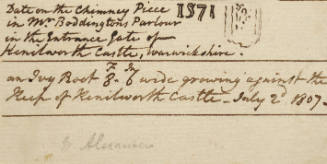 Date on the Chimney Piece 1571
in Mr. Boddingtons Parlour
in the Entrance Gate of
Kenilworth Castle, Warwickshire.
an Ivy Root 8 F. 6 In wide growing against the
Keep of Kenilworth Castle - July 2d 1807
Alexander